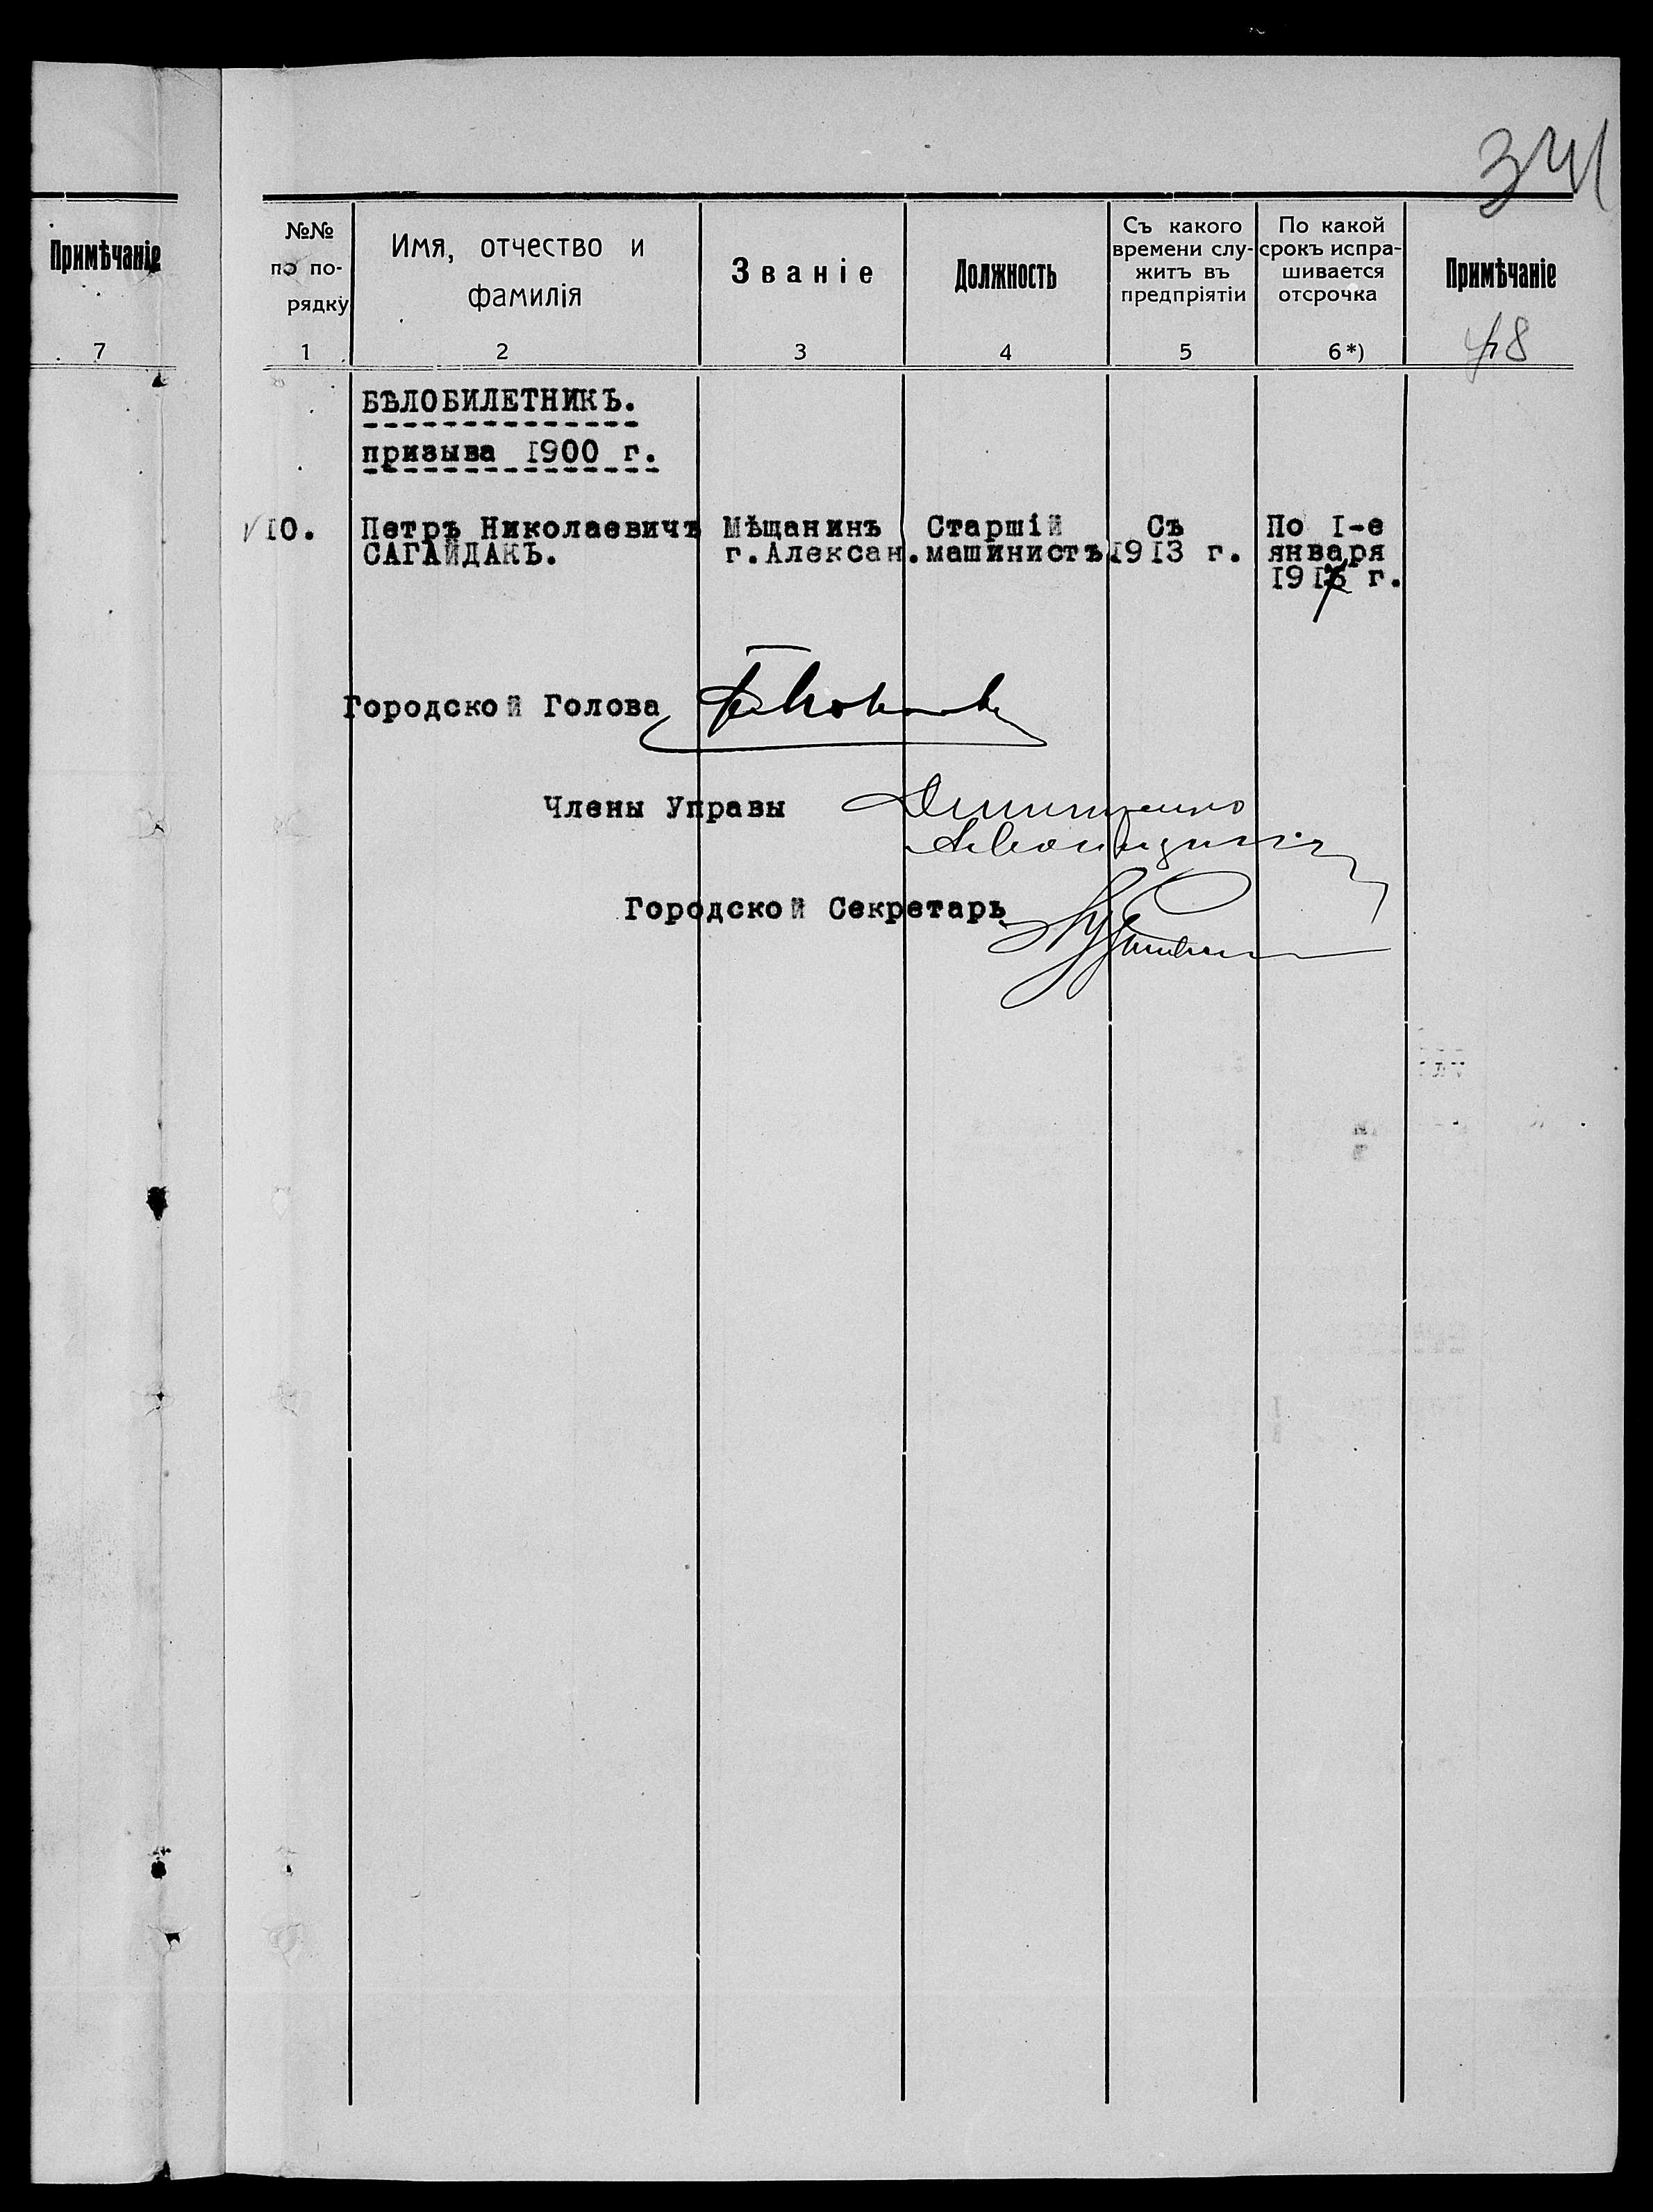 341
Примѣчаніе
7
№№ по по-рядку
Имя, отчество и фамилія
Званіе
Должность
Съ какого времени слу-житъ въ предпріятіи
По какой срокъ испра-шивается отсрочка
Примѣчаніе
1
2
3
4
5
6*)
БѢЛОБИЛЕТНИКЪ.
призыва 1900 г.
10. Петръ Николаевичъ Мѣщанинъ Старшій Съ По I-е
САГАЙДАКЪ. г.Алексан. машинистъ 1913 г. января
1917 г.
Городской Голова
Члены Управы
Городской Секретарь